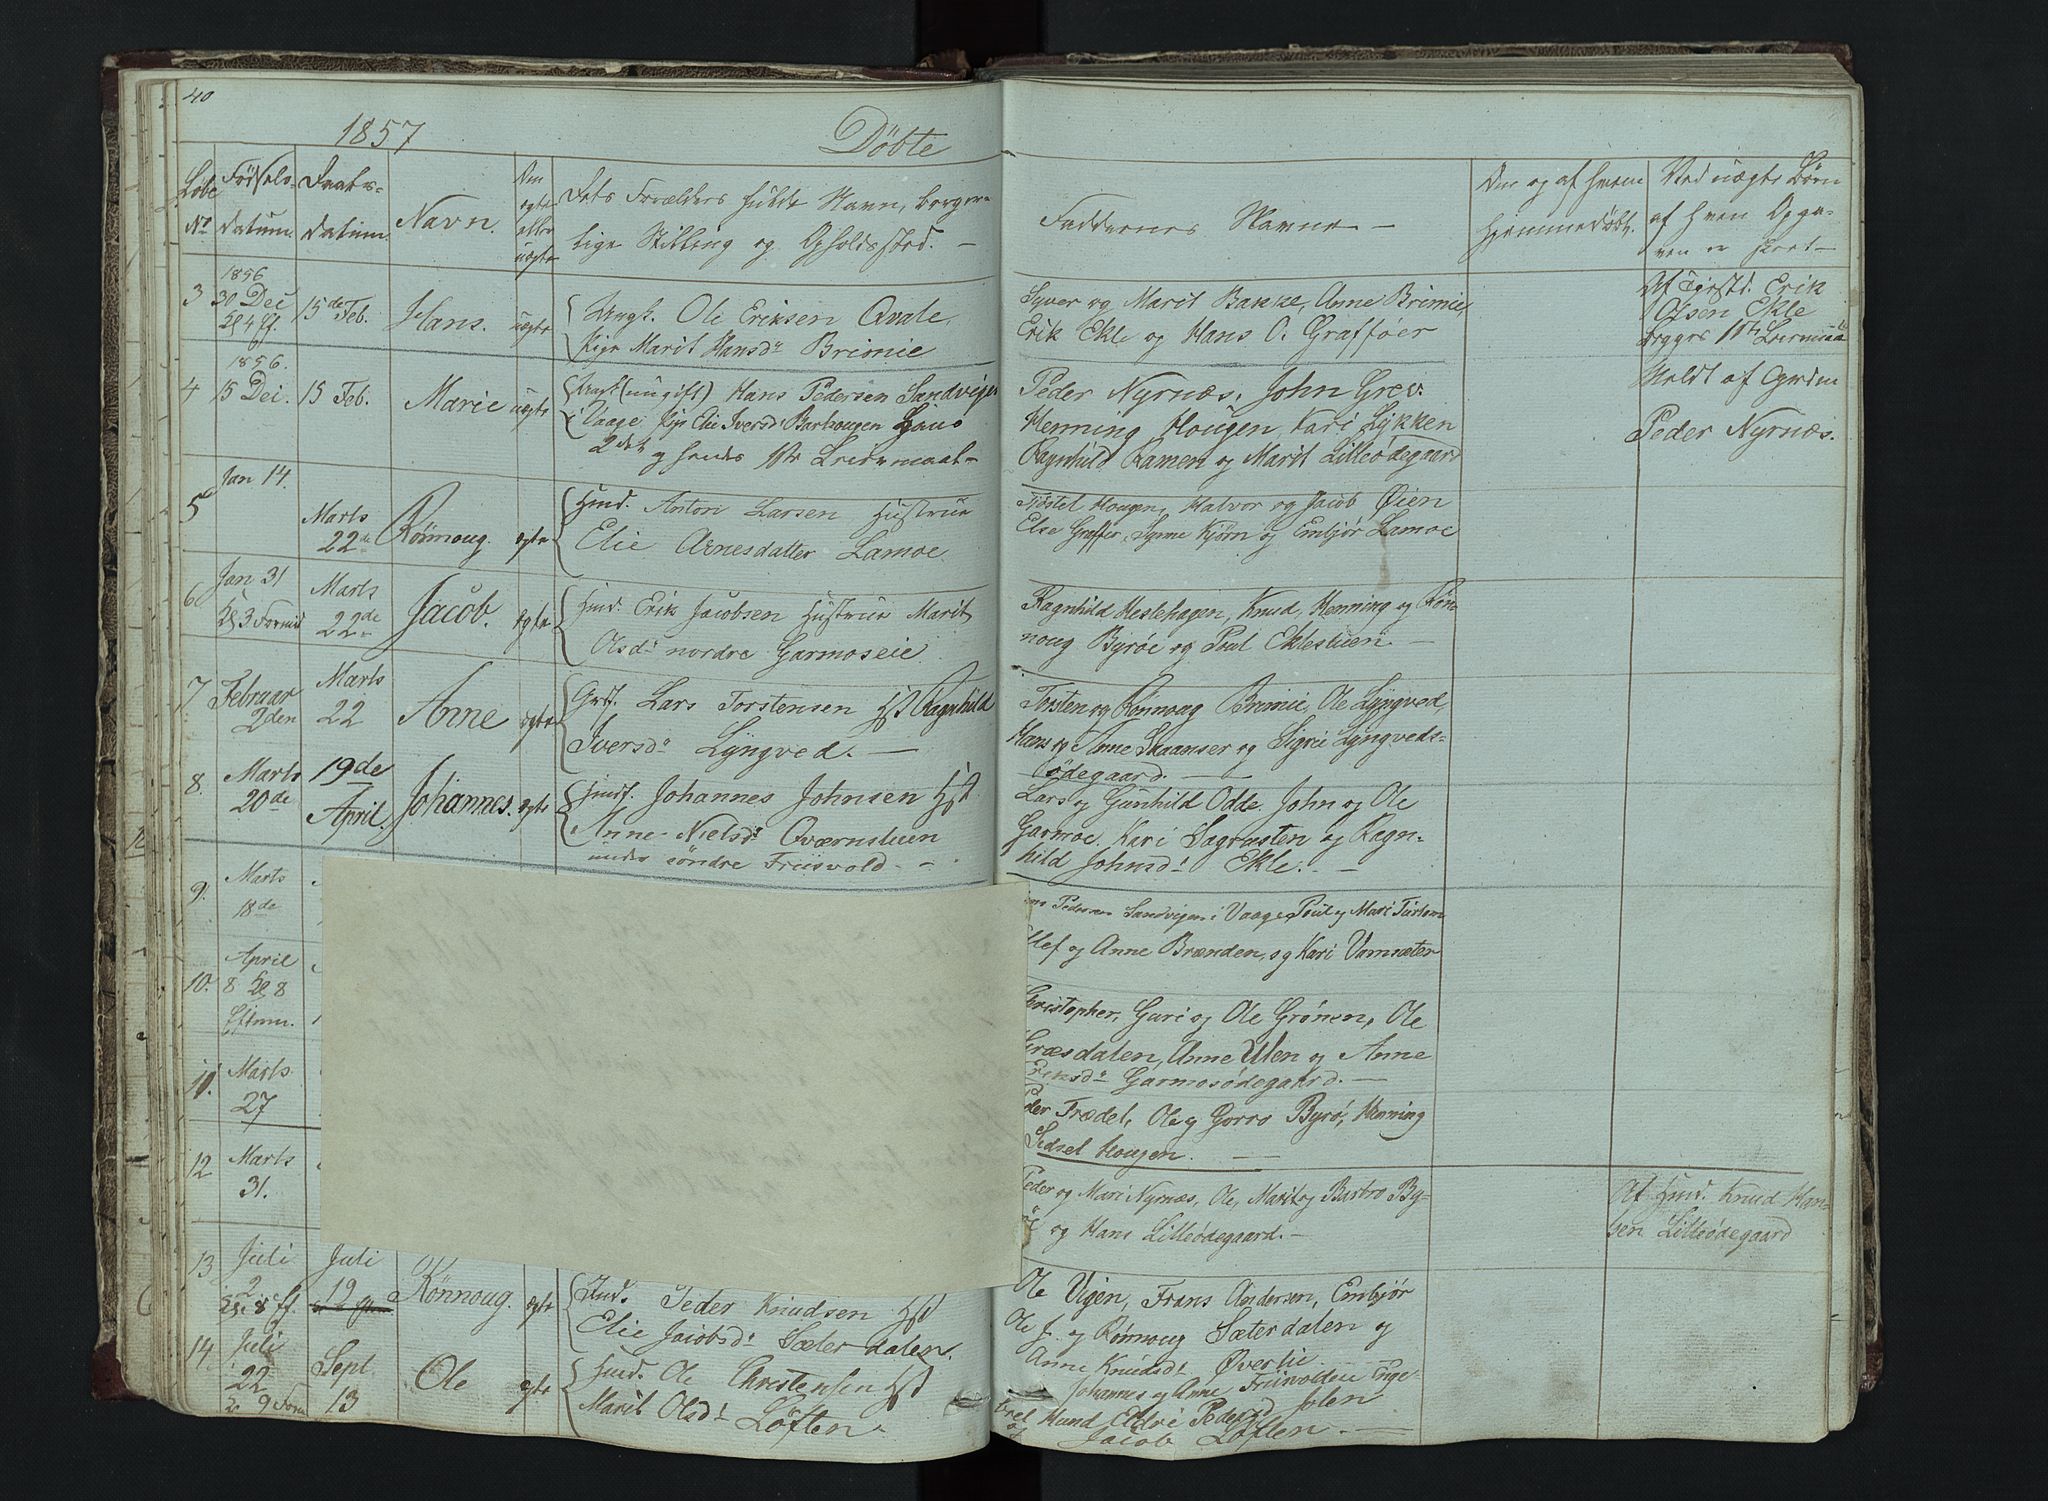 40
1857
Döbte
Löbe No
Födsels-datum.
Daabs-datum
Navn.
Om egte eller uegte
Dets Forældres fulde Navn, borger-
lige Stilling og Opholdssted. -
Faddernes Navne -
Om og af hvem
hjemmedöbt.
Ved uægte Börn
af hvem Opga-
ven er skeet -
3
1856
30 Dec
Kl 4 Ef.
15de Feb.
Hans.
uegte
Ungk. Ole Eriksen Qvale,
Pige Marit Hansdr Brimie
Syver og Marit Bakke, Anne Brimie,
Erik Ekle og Hans O. Graffoer
Erik
Olsen Ekle
4
1856.
15 Dec.
15 Feb.
Marie
uegte
Ungk (ungift) Hans Pedersen Sandvigen
i Vaage. Pige Elie Iversdr Barhougen Hans
2det og hendes 1ste Leiermaal -
Peder Nyrnæs, John Grev.
Henning Hougen, Kari Lykken
Ragnhild Ramen og Marit Lilleödegaard
Meldt af
Peder Nyrnæs.
5
Jan 14.
Marts
22de
Rönnoug.
egte
Hmd. Anton Larsen Hustrue
Elie Arnesdatter Lamoe
Töstel Hougen, Halvor og Jacob Øien
Else Graffer, Synne Kjörn og Embjör Lamoe
6
Jan 31
Kl 3 Formid
Marts
22de
Jacob.
egte
Hmd. Erik Jacobsen Hustrue Marit
Olsdr nordre Garmoseie
Ragnhild Heslehagen, Knud, Henning og Rön-
noug Byröe og Poul Eklestuen -
7
Februar
2den
Marts
22
Anne
egte
Grdf. Lars Torstensen Hst Ragnhild
Iversdr Lyngved. -
Torsten og Rönnoug Brimie, Ole Lyngved
Hans og Anne Skaanser og Sigrie Lyngveds-
ödegaard. -
8.
Marts
20de
19de
April
Johannes.
egte
Hmdf. Johannes Johnsen Hst
Anne Nielsdr Qværnstuen
under söndre Friisvold -
Lars og Gunhild Odde, John og Ole
Garmoe. Kari Sagrusten og Ragn-
hild Johnsdr Ekle. -
9.
Marts
18de
Pedersen Sandvigen i Vaage, Poul og Mari Turtom
og Anne Brænden, og Kari Vamsæter
10.
April
8 Kl 8
Eftmn.
Christopher, Guri og Ole Grönen, Ole
Græsdalen, Anne Ulen og Anne
Eriksdr Garmosödegaard. -
11.
Marts
27
Trædet, Ole og Gorro Byrö, Henning
Sidsel Hougen. -
12
Marts
31.
Peder og Mari Nyrnæs, Ole, Marit og Bastro By-
og Hans Lilleödegaard. -
Af Hmd. Knud Han-
sen Lilleödegaard
13
Juli
2
Kl. 8 Ef.
Juli
19
Rönnoug.
egte
Hmd. Peder Knudsen Hst
Elie Jacobsdr Sæterdalen.
Ole Vigen, Frans Andersen, Embjör
Ole J. og Rönnoug Sæterdalen og
Anne Knudsdr Øverlie
14.
Juli
22
Kl 9 Form
Sept
13
Ole
egte
Hmd. Ole Christensen Hst
Marit Olsdr Löften.
Johannes og Anne Friisvolden Enge-
Jacob Löften. -